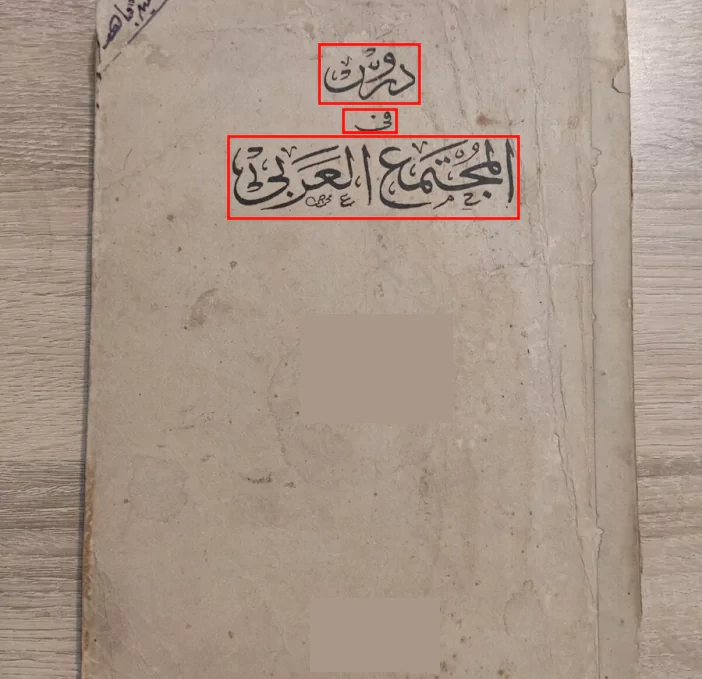 دروس
في
المجتمع العربى